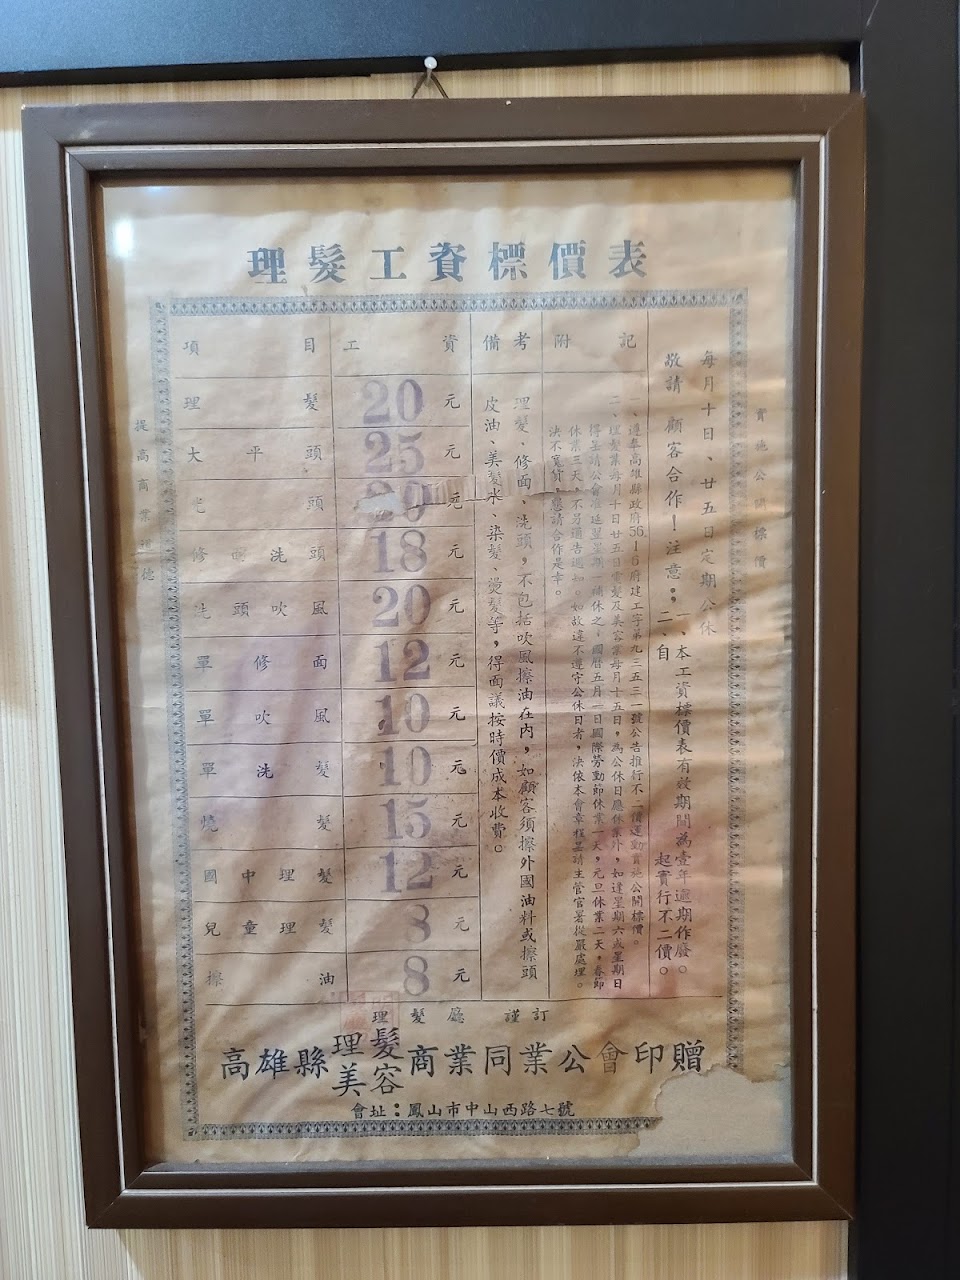 理髮工資標價表
實施公開標價
提高商業道德
每月十日、廿五日定期公休
敬請 顧客合作！注意：一、本工資標價表有效期間為壹年逾期作廢。
二、自 起實行不二價。
項目 工資 備考 附記
理髮 20 元
大平頭 25 元
光頭 20 元
修面洗頭 18 元
洗頭吹風 20 元
單修面 12 元
單吹風 10 元
單洗髮 10 元
燒髮 15 元
國中理髮 12 元
兒童理髮 8 元
擦油 8 元
理髮、修面、洗頭，不包括吹風擦油在內，如顧客須擦外國油料或擦頭
皮油、美髮水、染髮、燙髮等，得面議按時價成本收費。
一、遵奉高雄縣政府56.1.日府建工字第九三五三一號公告推行不二價運動實施公開標價。
二、理髮業每月十日廿五日電髮及美容業每月十五日，為公休日應休業外，如逢星期六或星期日
得呈請公會准延翌星期一補休之，國曆五月一日國際勞動節休業一天，元旦休業二天，春節
休業三天，不另通告週知。如故違不遵守公休日者，決依本會章程呈請主管官署從嚴處理。
決不寬貸，懇請合作是幸。
理髮廳 謹訂
高雄縣理髮美容商業同業公會印贈
會址：鳳山市中山西路七號